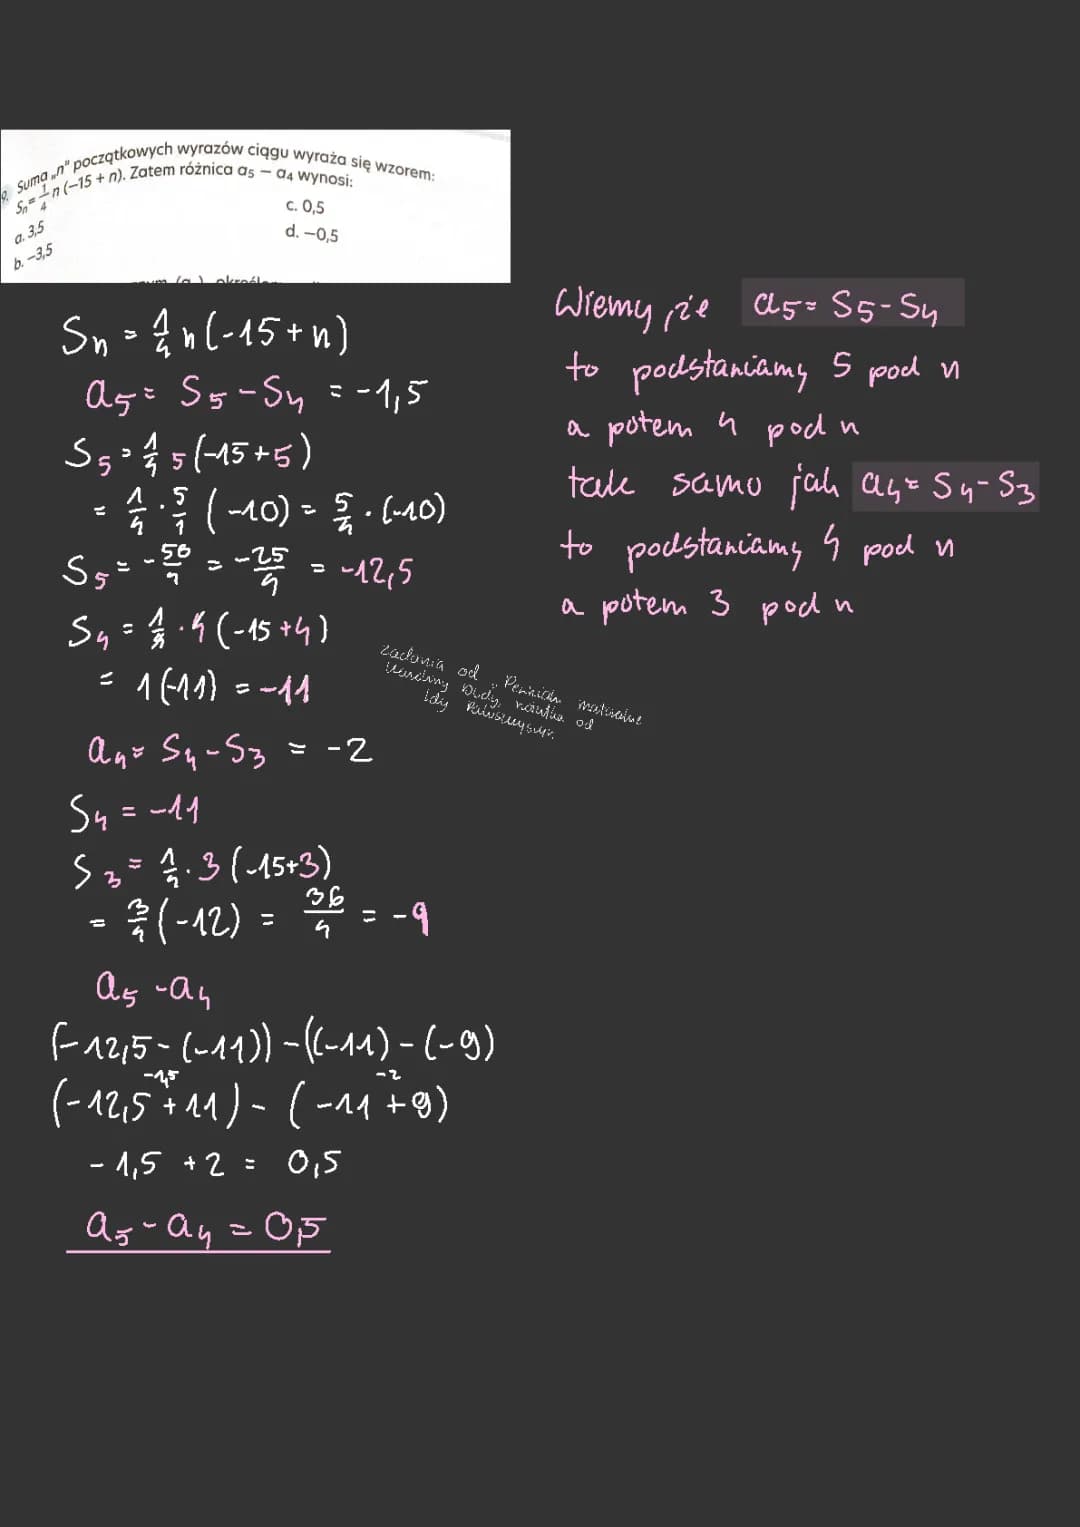 9. Suma „n" początkowych wyrazów ciągu wyraża się wzorem:
Sn = 1/4 n (-15 + n). Zatem różnica a5 - a4 wynosi:
a. 3,5
b. -3,5
c. 0,5
d. -0,5
Sn = 1/4 n (-15 + n)
a5 = S5 - S4 = -1,5
S5 = 1/4 5 (-15 + 5)
= 1/4 · 5/1 (-10) = 5/4 · (-10)
S5 = - 50/4 = -25/4 = -12,5
S4 = 1/4 · 4 (-15 + 4)
= 1 (-11) = -11
a4 = S4 - S3 = -2
S4 = -11
S3 = 1/4 · 3 (-15+3)
= 3/4 (-12) = 36/4 = -9
a5 - a4
(-12,5 - (-11)) - ((-11) - (-9)
-1,5 -2
(-12,5 + 11) - (-11 + 9)
- 1,5 + 2 = 0,5
a5 - a4 = 0,5
Wiemy, że a5 = S5 - S4
to podstawiamy 5 pod n
a potem 4 pod n
tak samo jak a4 = S4 - S3
to podstawiamy 4 pod n
a potem 3 pod n
zadania od